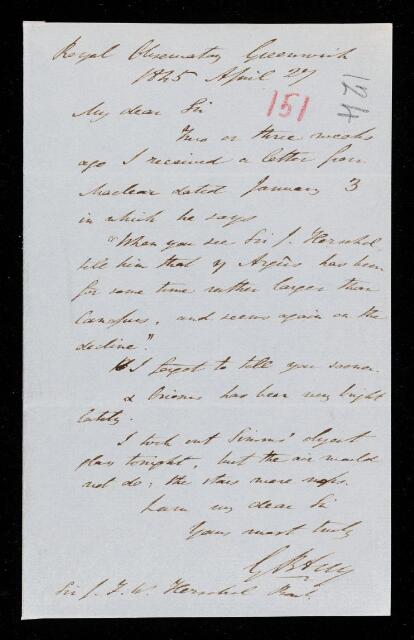 Royal Observatory Greenwich
1845 April 27
151
124
My dear Sir
Two or three weeks
ago I received a letter from
Maclear dated January 3
in which he says
"When you see Sir J. Herschel,
tell him that η Argûs has been
for some time rather larger than
Canopus, and seems again on the
decline."
I forgot to tell you sooner.
α Orionis has been very bright
lately.
I took out Simms' object
glass tonight, but the air would
not do: the stars were
I am my dear Sir
Yours most truly
G B Airy
Sir J. F. W. Herschel Bart.